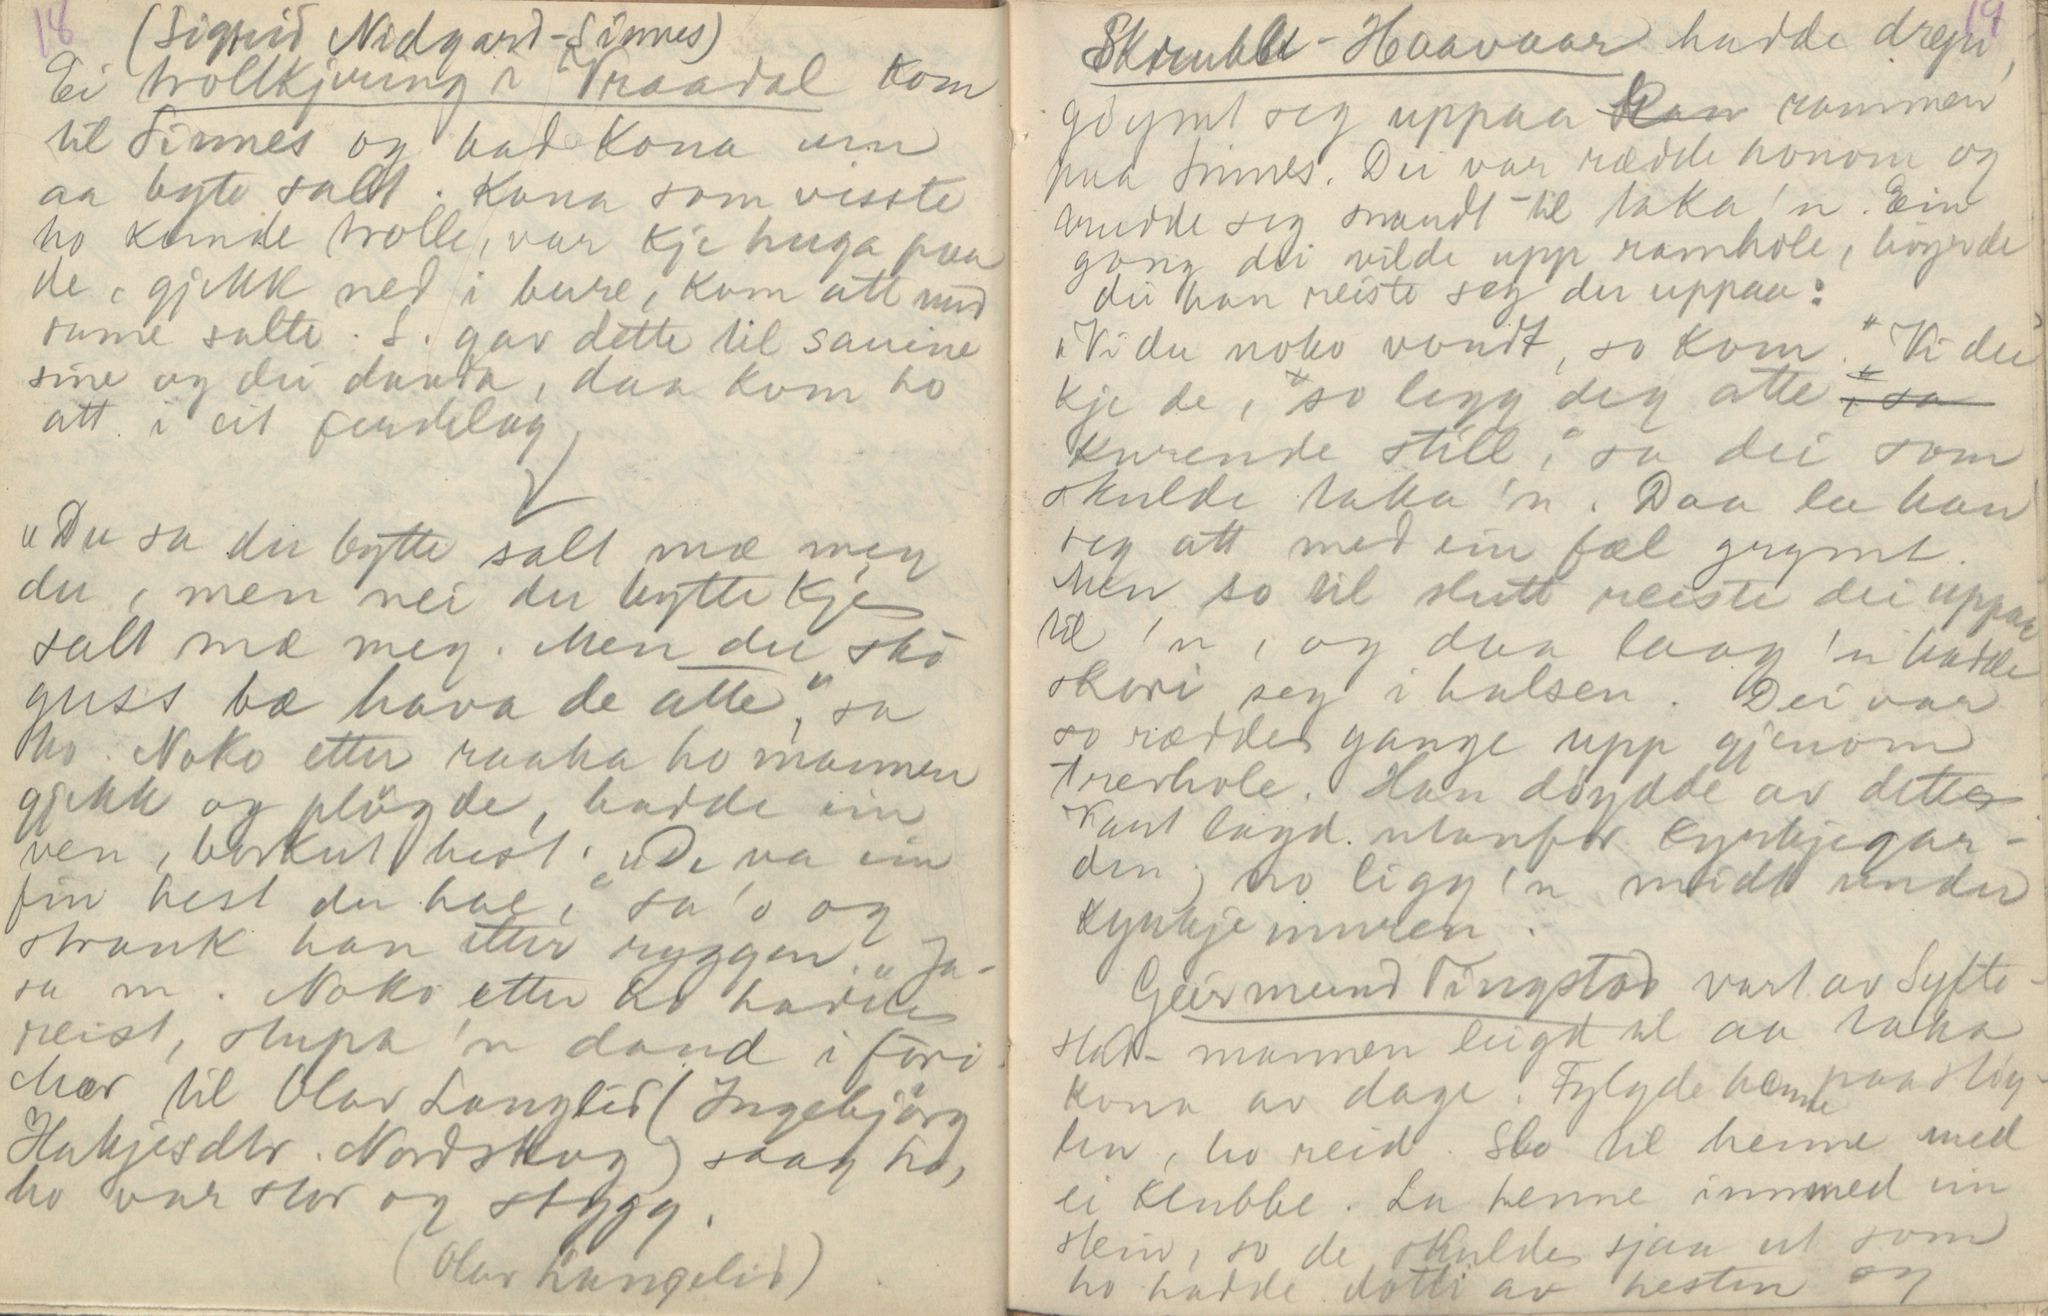 18
(Sigrid Nidgard-Sinnes)
Ei trollkjering i Vraadal kom
til Sinnes og bad Kona um
aa byte salt. Kona som visste
ho kunde trolle, var kje huga paa
de, gjekk ned i bure, kom att med
same salte. S. gav dette til sauine
sine og dei dauda, daa kom ho
att i eit ferdelag
"Du sa du bytte salt mæ meg
du, men nei du bytte kje
salt mæ meg. Men du sko
guss bæ hava de atte," sa
ho. Noko etter raaka ho mannen
gjekk og plögde, hadde ein
ven, borkut hest. "De va ein
fin hest du hae," sa 'o og
strauk han etter ryggen. "Ja-
sa m. Noko etter ho hadde
reist, stupa 'n daud i föri.
Mor til Olav Langlid (Ingebjörg
Hakjesdtr. Nordskog) saag ho,
ho var stor og stygg.
(Olav Langelid)
19
Skrubbe-Haavaar hadde drepi,
göymt seg uppaa rammen
paa Sinnes. Dei var rædde honom og
budde seg mandt-til taka 'n. Ein
gong dei vilde upp romhole, höyrde
dei han reiste seg der uppaa:
"Vi du noko vondt, so kom." "Vi du
kje de, so legg deg atte, sa
kurende still," sa dei som
skulde taka 'n. Daa la han
seg att med ein fæl grymt.
Men so til slutt reiste dei uppaa
til 'n, og daa laag 'n hadde
skori seg i halsen. Dei var
so rædde gange upp gjenom
trevhole. Han döydde av dette
Vart lagd utanfor Kyrkjegar-
den; no ligg 'n midt under
Kyrkjemuren.
Geirmund Tingstad vart av Syfte-
stad-mannen leigd til aa taka
kona av dage. Fylgde henne paa slög-
ten, ho reid. Slo til henne med
ei klubbe. La henne innmed ein
stein, so de skulde sjaa ut som
ho hadde dotti av hesten og